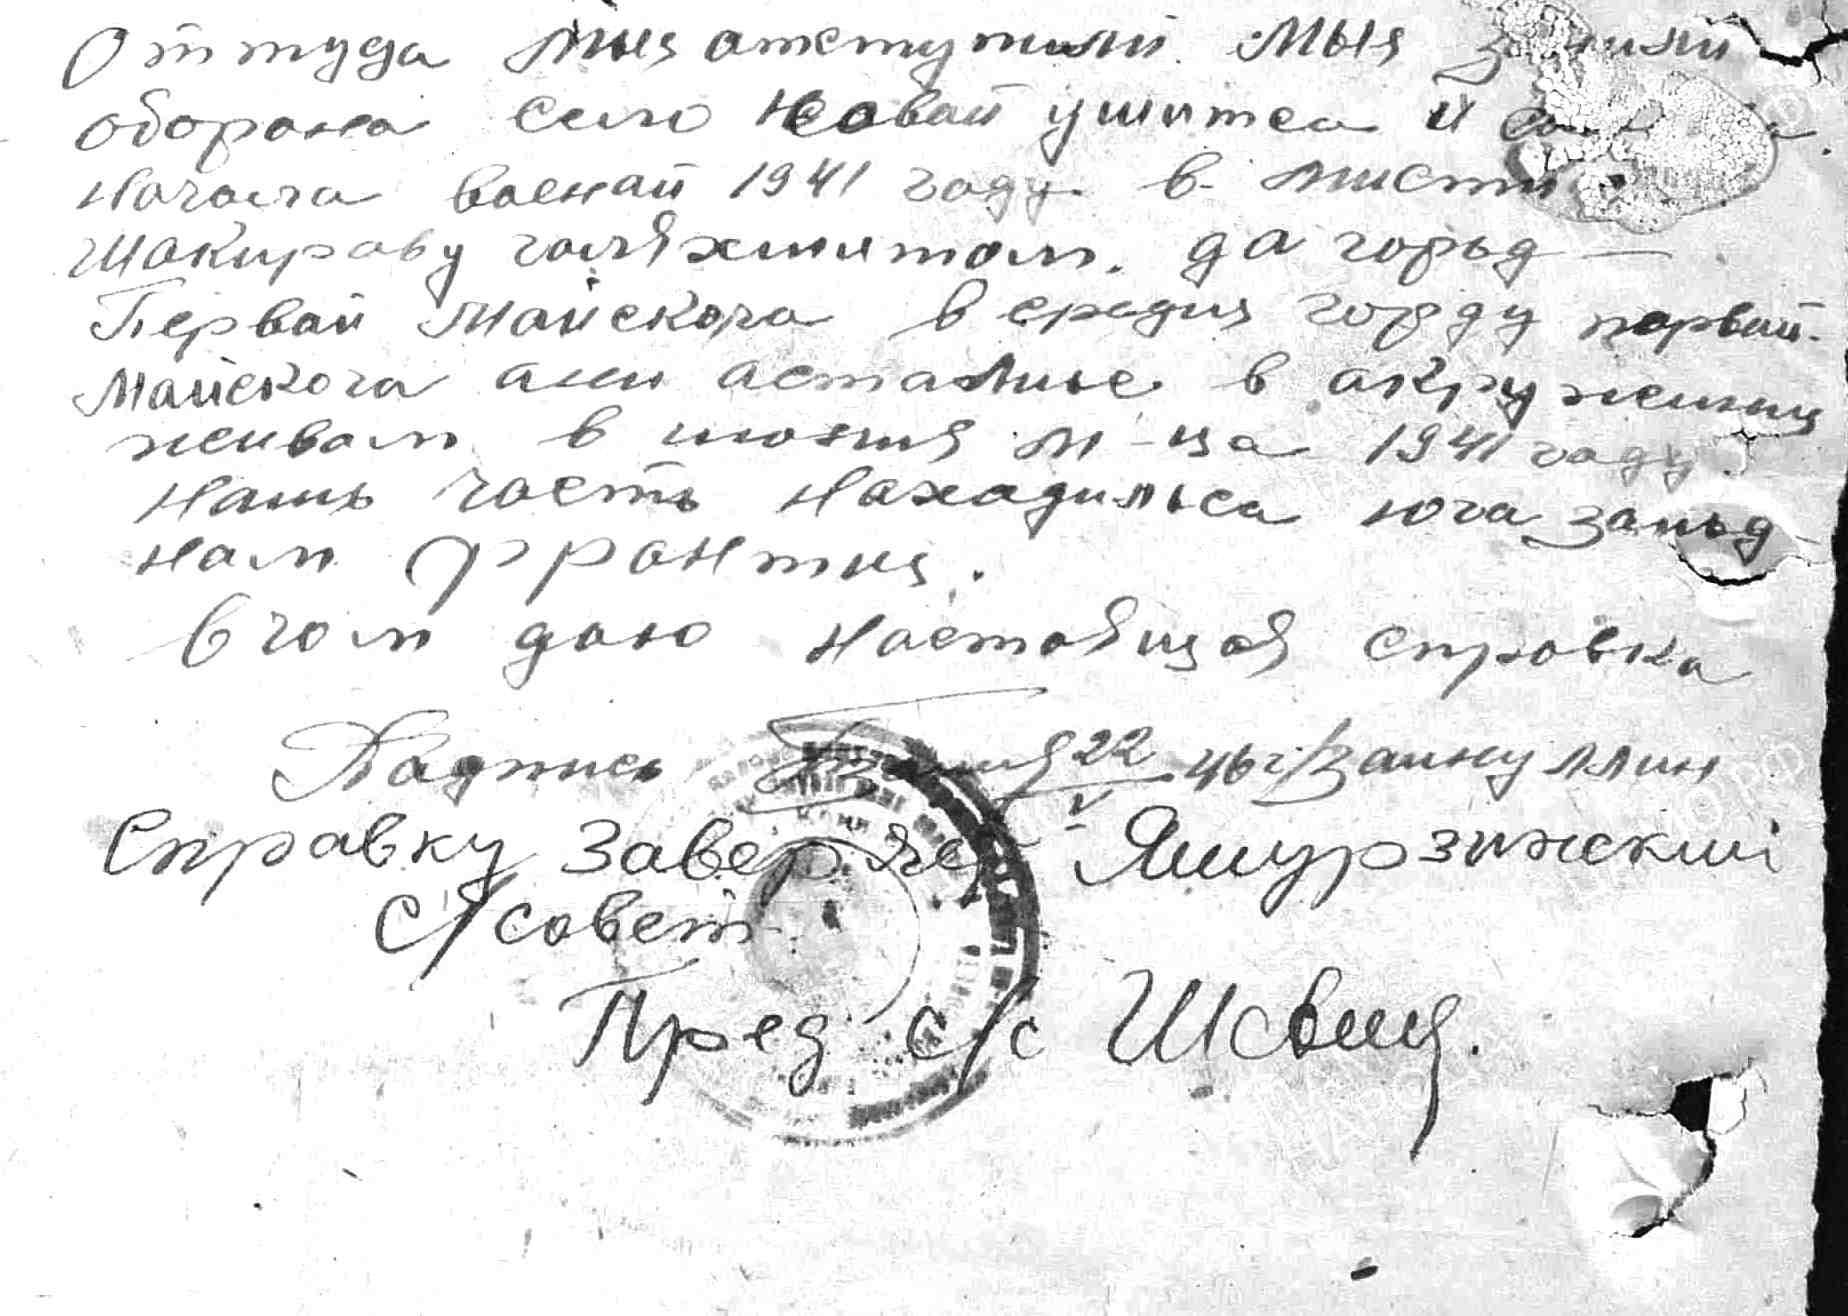 Оттуда мыя отступили. Мыя
оборона село Новай ушитса и
Начала военай 1941 году. в мисти
Шакираву галяхматом. да горьд —
Первай Майскога в средия горду первай-
Майскога ани асталис в акружении
живом в июния м-ца 1941 году.
Нашь часть находилься юга западь
ном ффронтия.
в чом даю настоящая справка
Падпись 22/V 46 г. Зайнуллин
Справку заверяет Яшурзинский
с/совет
Пред с/с